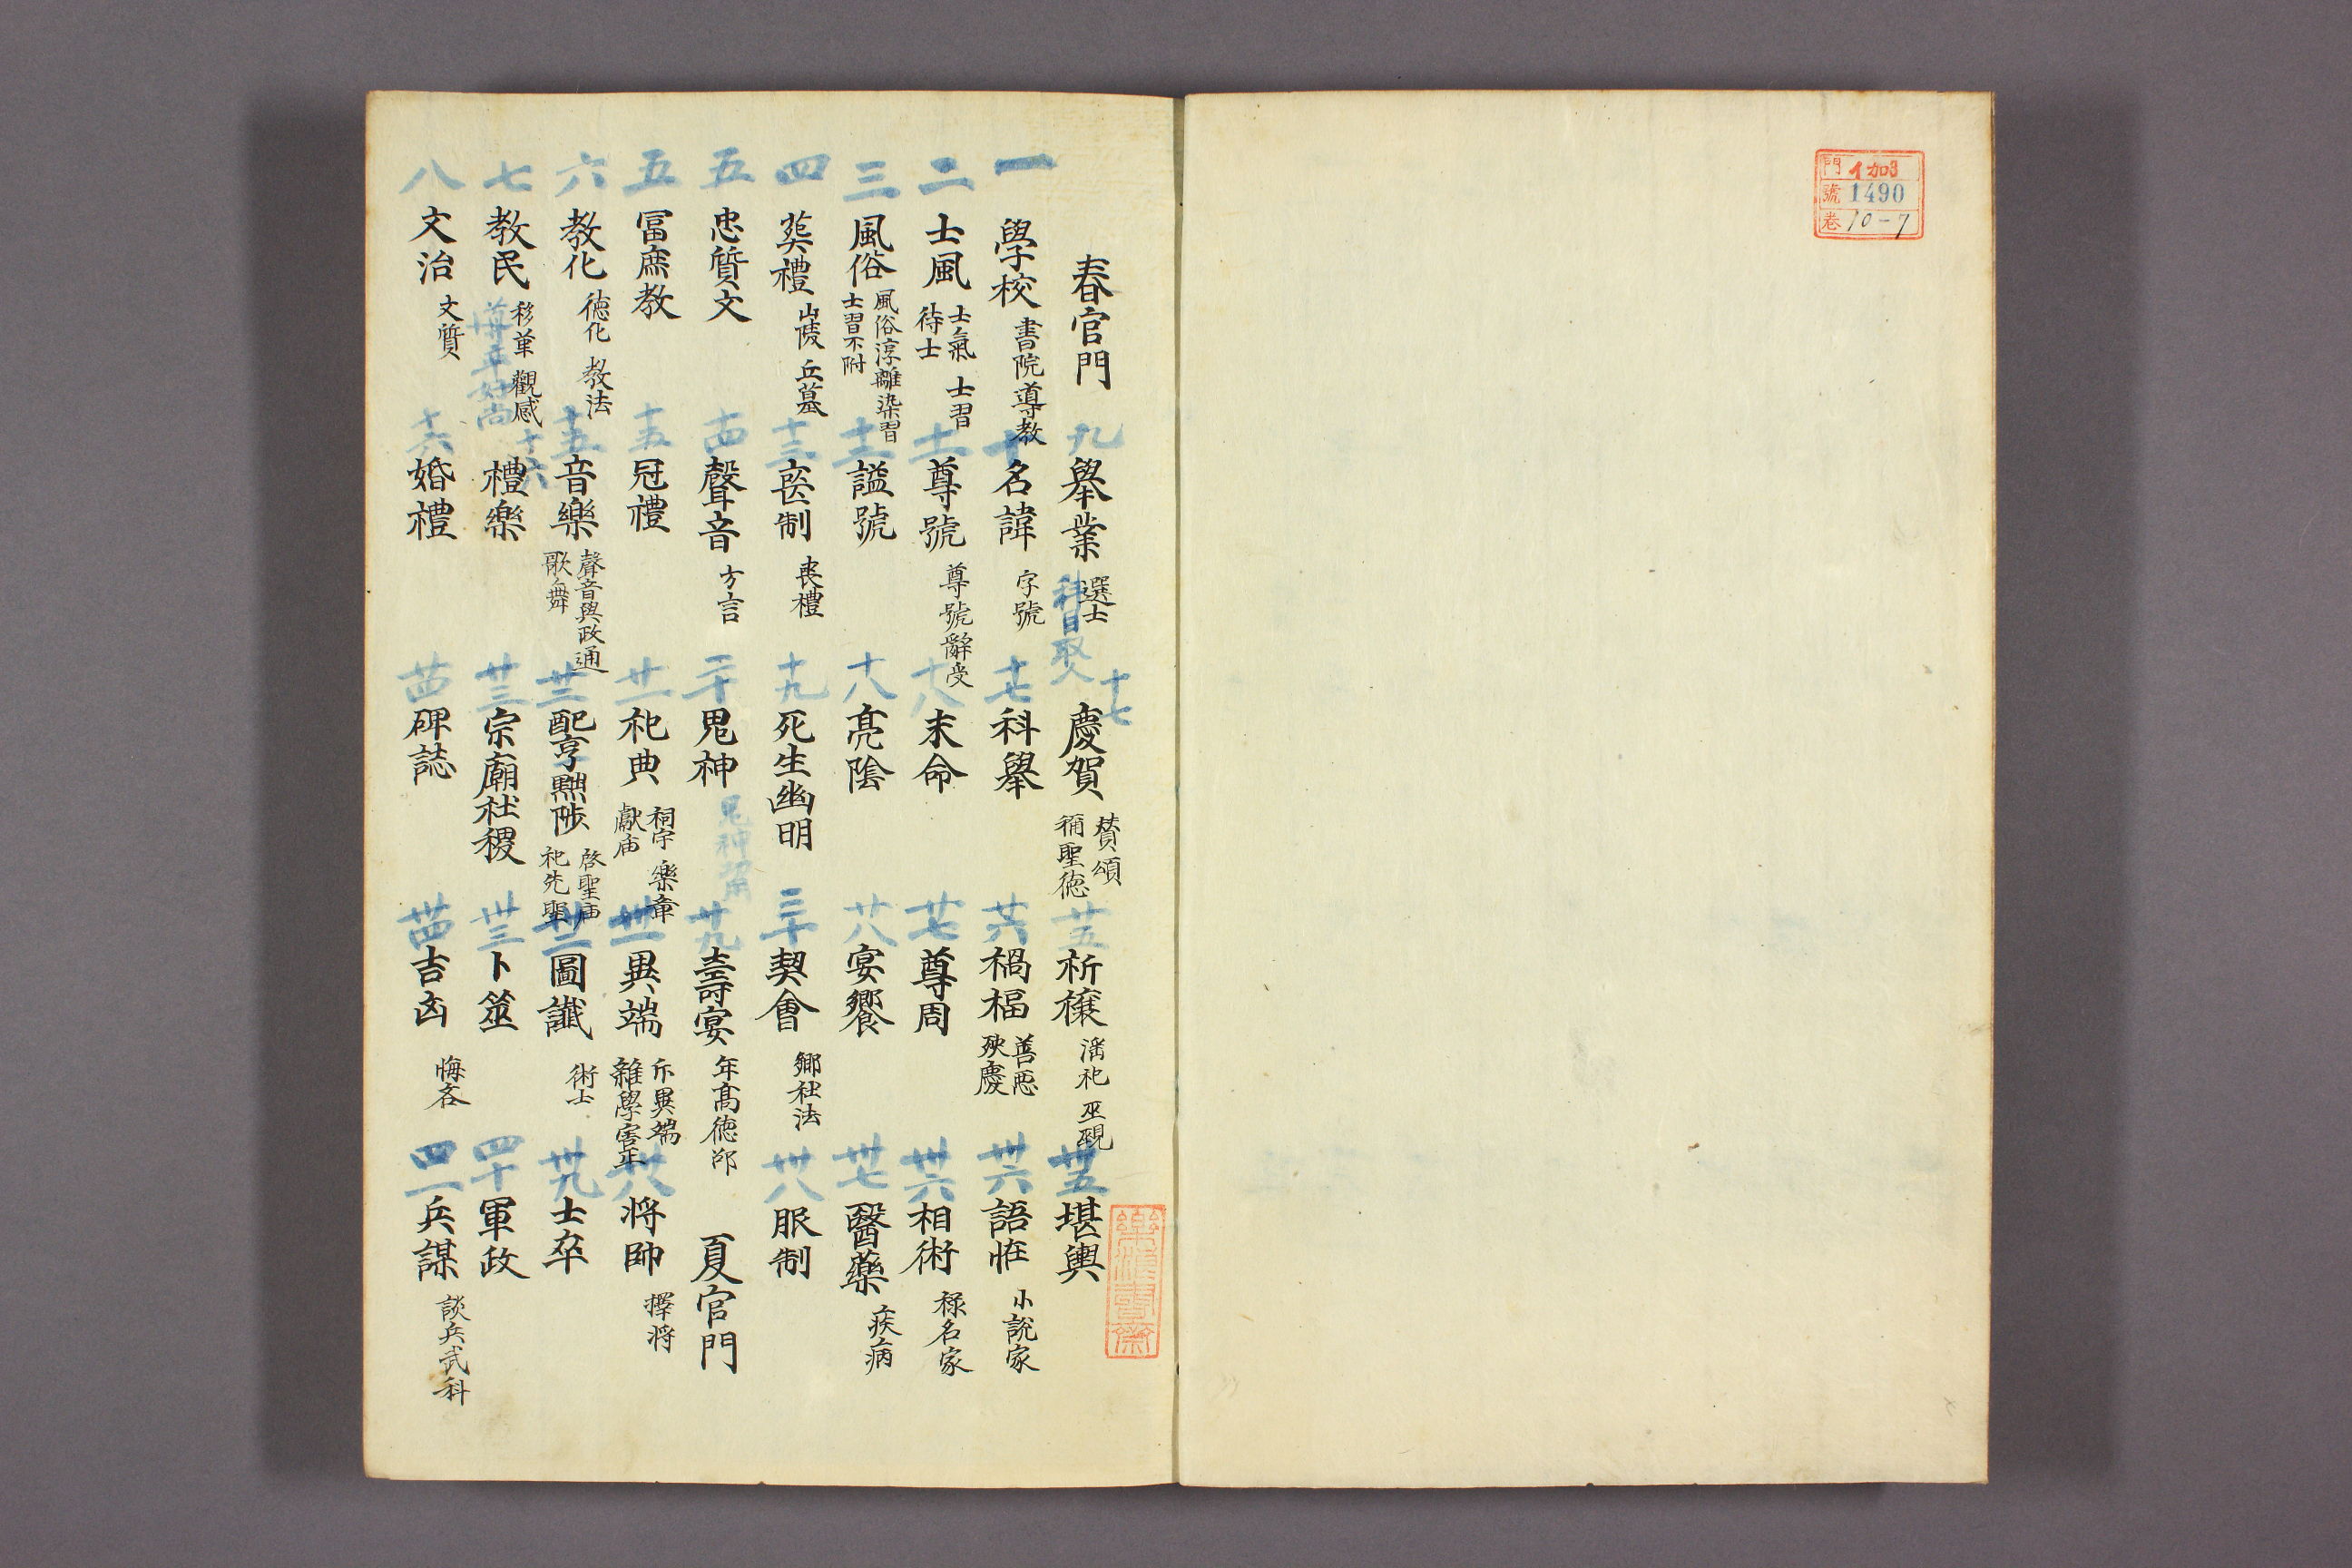 門 イ加3
號 1490
卷 10-7
春官門
一 學校 書院 尊教
二 士風 士氣 士習 待士
三 風俗 風俗淳離 染習 士習不附
四 葬禮 山陵 丘墓
五 忠質文
五 富庶教
六 教化 德化 教法
七 教民 移革 觀感
八 文治 文質
九 舉業 選士 科目取人
十 名諱 字號
十一 尊號 尊號辭受
十二 謚號
十三 喪制 喪禮
十四 聲音 方言
十五 冠禮
十五 音樂 聲音與政通 歌舞
十六 禮樂
十六 婚禮
十七 慶賀 賛頌 稱聖德
十七 科舉
十八 末命
十八 亮陰
十九 死生幽明
二十 鬼神
廿一 祀典 祠宇 樂章 獻庙
廿二 配享黜陟 啓聖庙 祀先聖
廿三 宗廟社稷
廿四 碑誌
廿五 祈禳 淫祀 巫覡
廿六 禍福 善惡 殃慶
廿七 尊周
廿八 宴饗
三十 契會 鄉社法
廿九 壽宴 年高德邵
卅一 異端 斥異端 雜學害正
卅二 圖讖 術士
卅三 卜筮
卅四 吉凶 悔吝
卅五 堪輿
卅六 語恠 小說家
卅六 相術 祿名家
卅七 醫藥 疾病
卅八 服制
夏官門
卅八 将帥 擇将
卅九 士卒
四十 軍政
四一 兵謀 談兵 武科